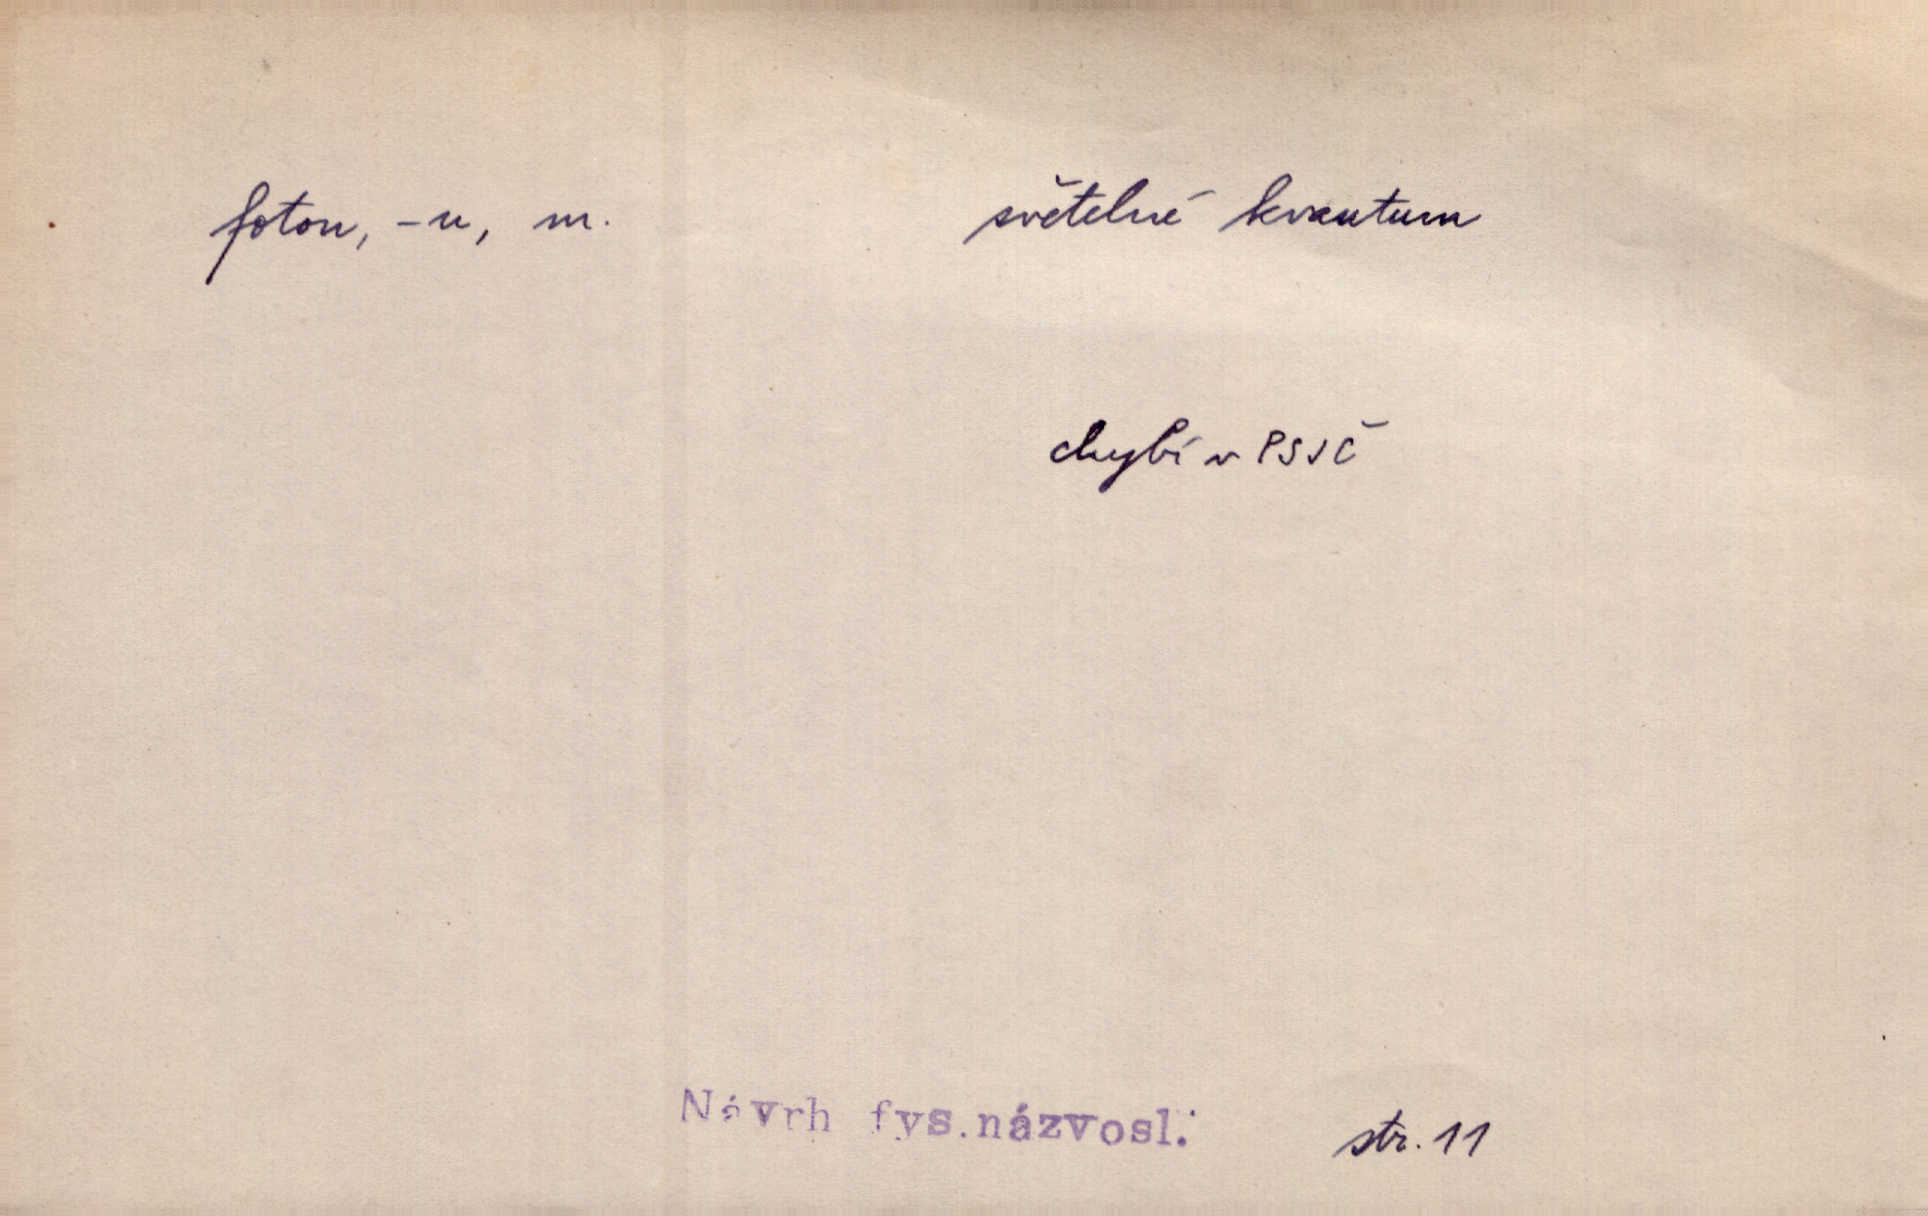 foton, -u, m. světelné kvantum
chybí v PSJČ
Návrh fys. názvosl. str. 11